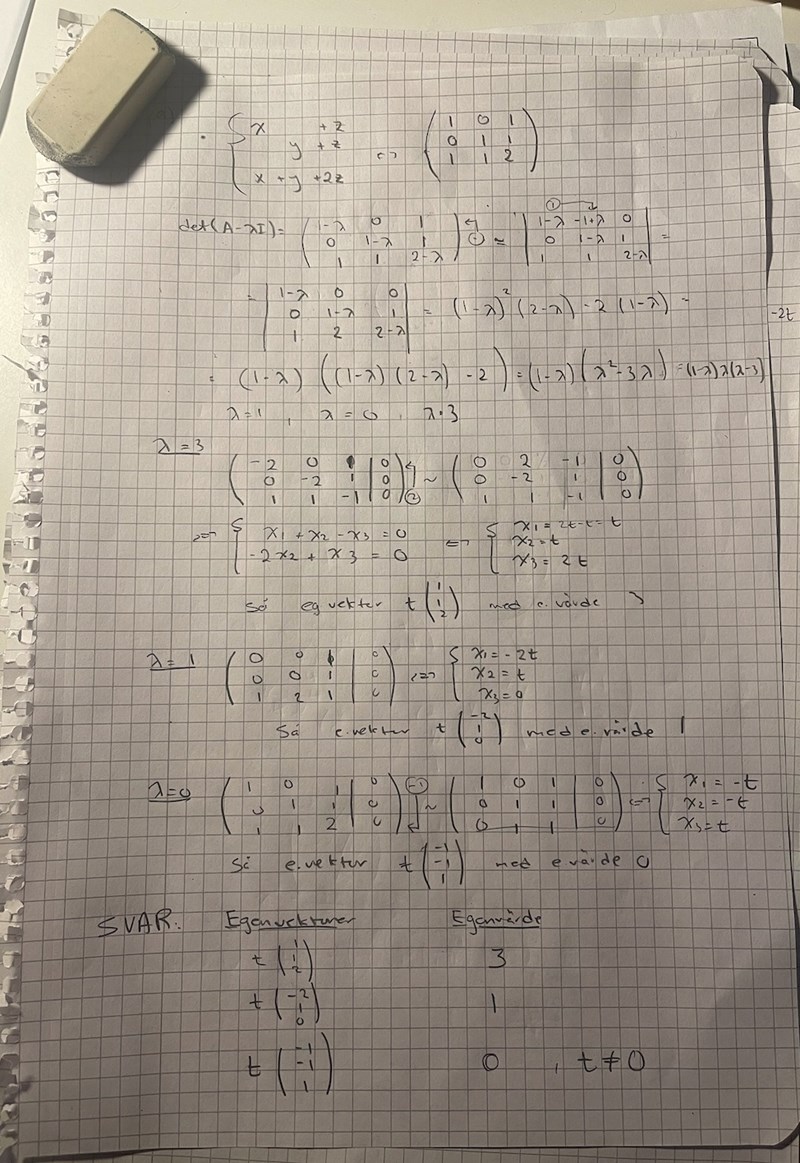 { x + z
y + z
x + y + 2z <=> ( 1 0 1 / 0 1 1 / 1 1 2 )
det(A-λI) = ( 1-λ 0 1 / 0 1-λ 1 / 1 1 2-λ ) ↰ (-1) = | 1-λ -1+λ 0 / 0 1-λ 1 / 1 1 2-λ | =
= | 1-λ 0 0 / 0 1-λ 1 / 1 2 2-λ | = (1-λ)² (2-λ) - 2 (1-λ) =
-2t
= (1-λ) ((1-λ)(2-λ) - 2) = (1-λ)(λ² - 3λ) = (1-λ)λ(λ-3)
λ=1 , λ=0 , λ=3
λ=3
( -2 0 1 | 0 / 0 -2 1 | 0 / 1 1 -1 | 0 ) ↰ (2) ~ ( 0 2 -1 | 0 / 0 -2 1 | 0 / 1 1 -1 | 0 )
<=> { x1 + x2 - x3 = 0 / -2x2 + x3 = 0 <=> { x1 = 2t-t = t / x2 = t / x3 = 2t
Så eg vektor t ( 1 / 1 / 2 ) med e. värde 3
λ=1 ( 0 0 1 | 0 / 0 0 1 | 0 / 1 2 1 | 0 ) <=> { x1 = -2t / x2 = t / x3 = 0
Så e.vektor t ( -2 / 1 / 0 ) med e.värde 1
λ=0 ( 1 0 1 | 0 / 0 1 1 | 0 / 1 1 2 | 0 ) (-1) ~ ( 1 0 1 | 0 / 0 1 1 | 0 / 0 1 1 | 0 ) <=> { x1 = -t / x2 = -t / x3 = t
Så e.vektor t ( -1 / -1 / 1 ) med e värde 0
SVAR: Egenvektorer Egenvärde
t ( 1 / 1 / 2 ) 3
t ( -2 / 1 / 0 ) 1
t ( -1 / -1 / 1 ) 0 , t ≠ 0